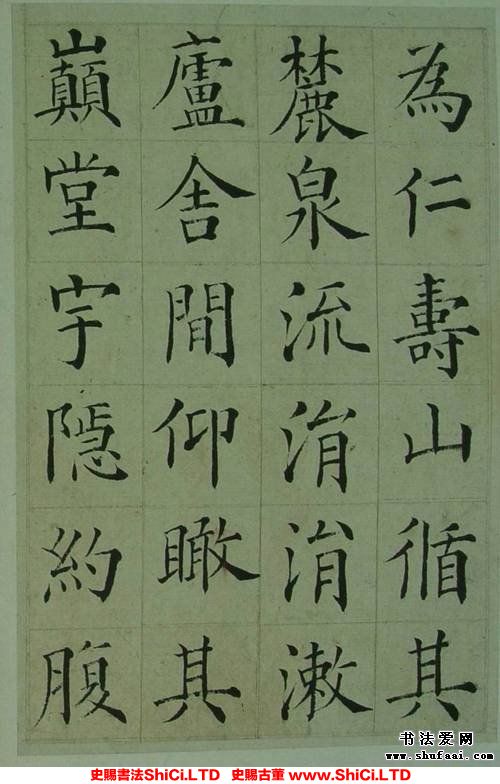 為仁壽山循其
麓泉流涓涓漱
廬舍間仰瞰其
巔堂宇隱約腹
书法爱网
www.shufaai.com
史賜書法ShiCi.LTD 史賜古董 www.ShiCi.LTD